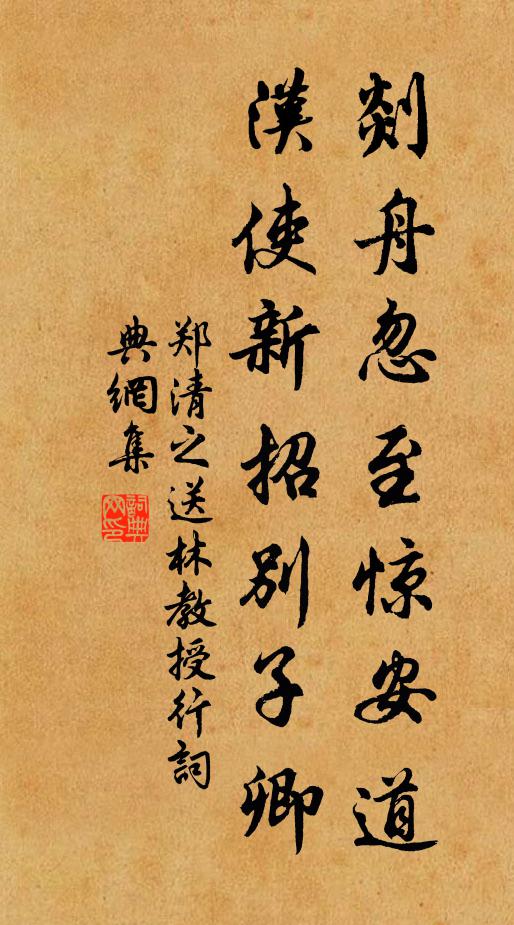 剡舟忽至惊安道
漢使新招别子卿
郑清之送林教授行詞
典網集
詞典网印